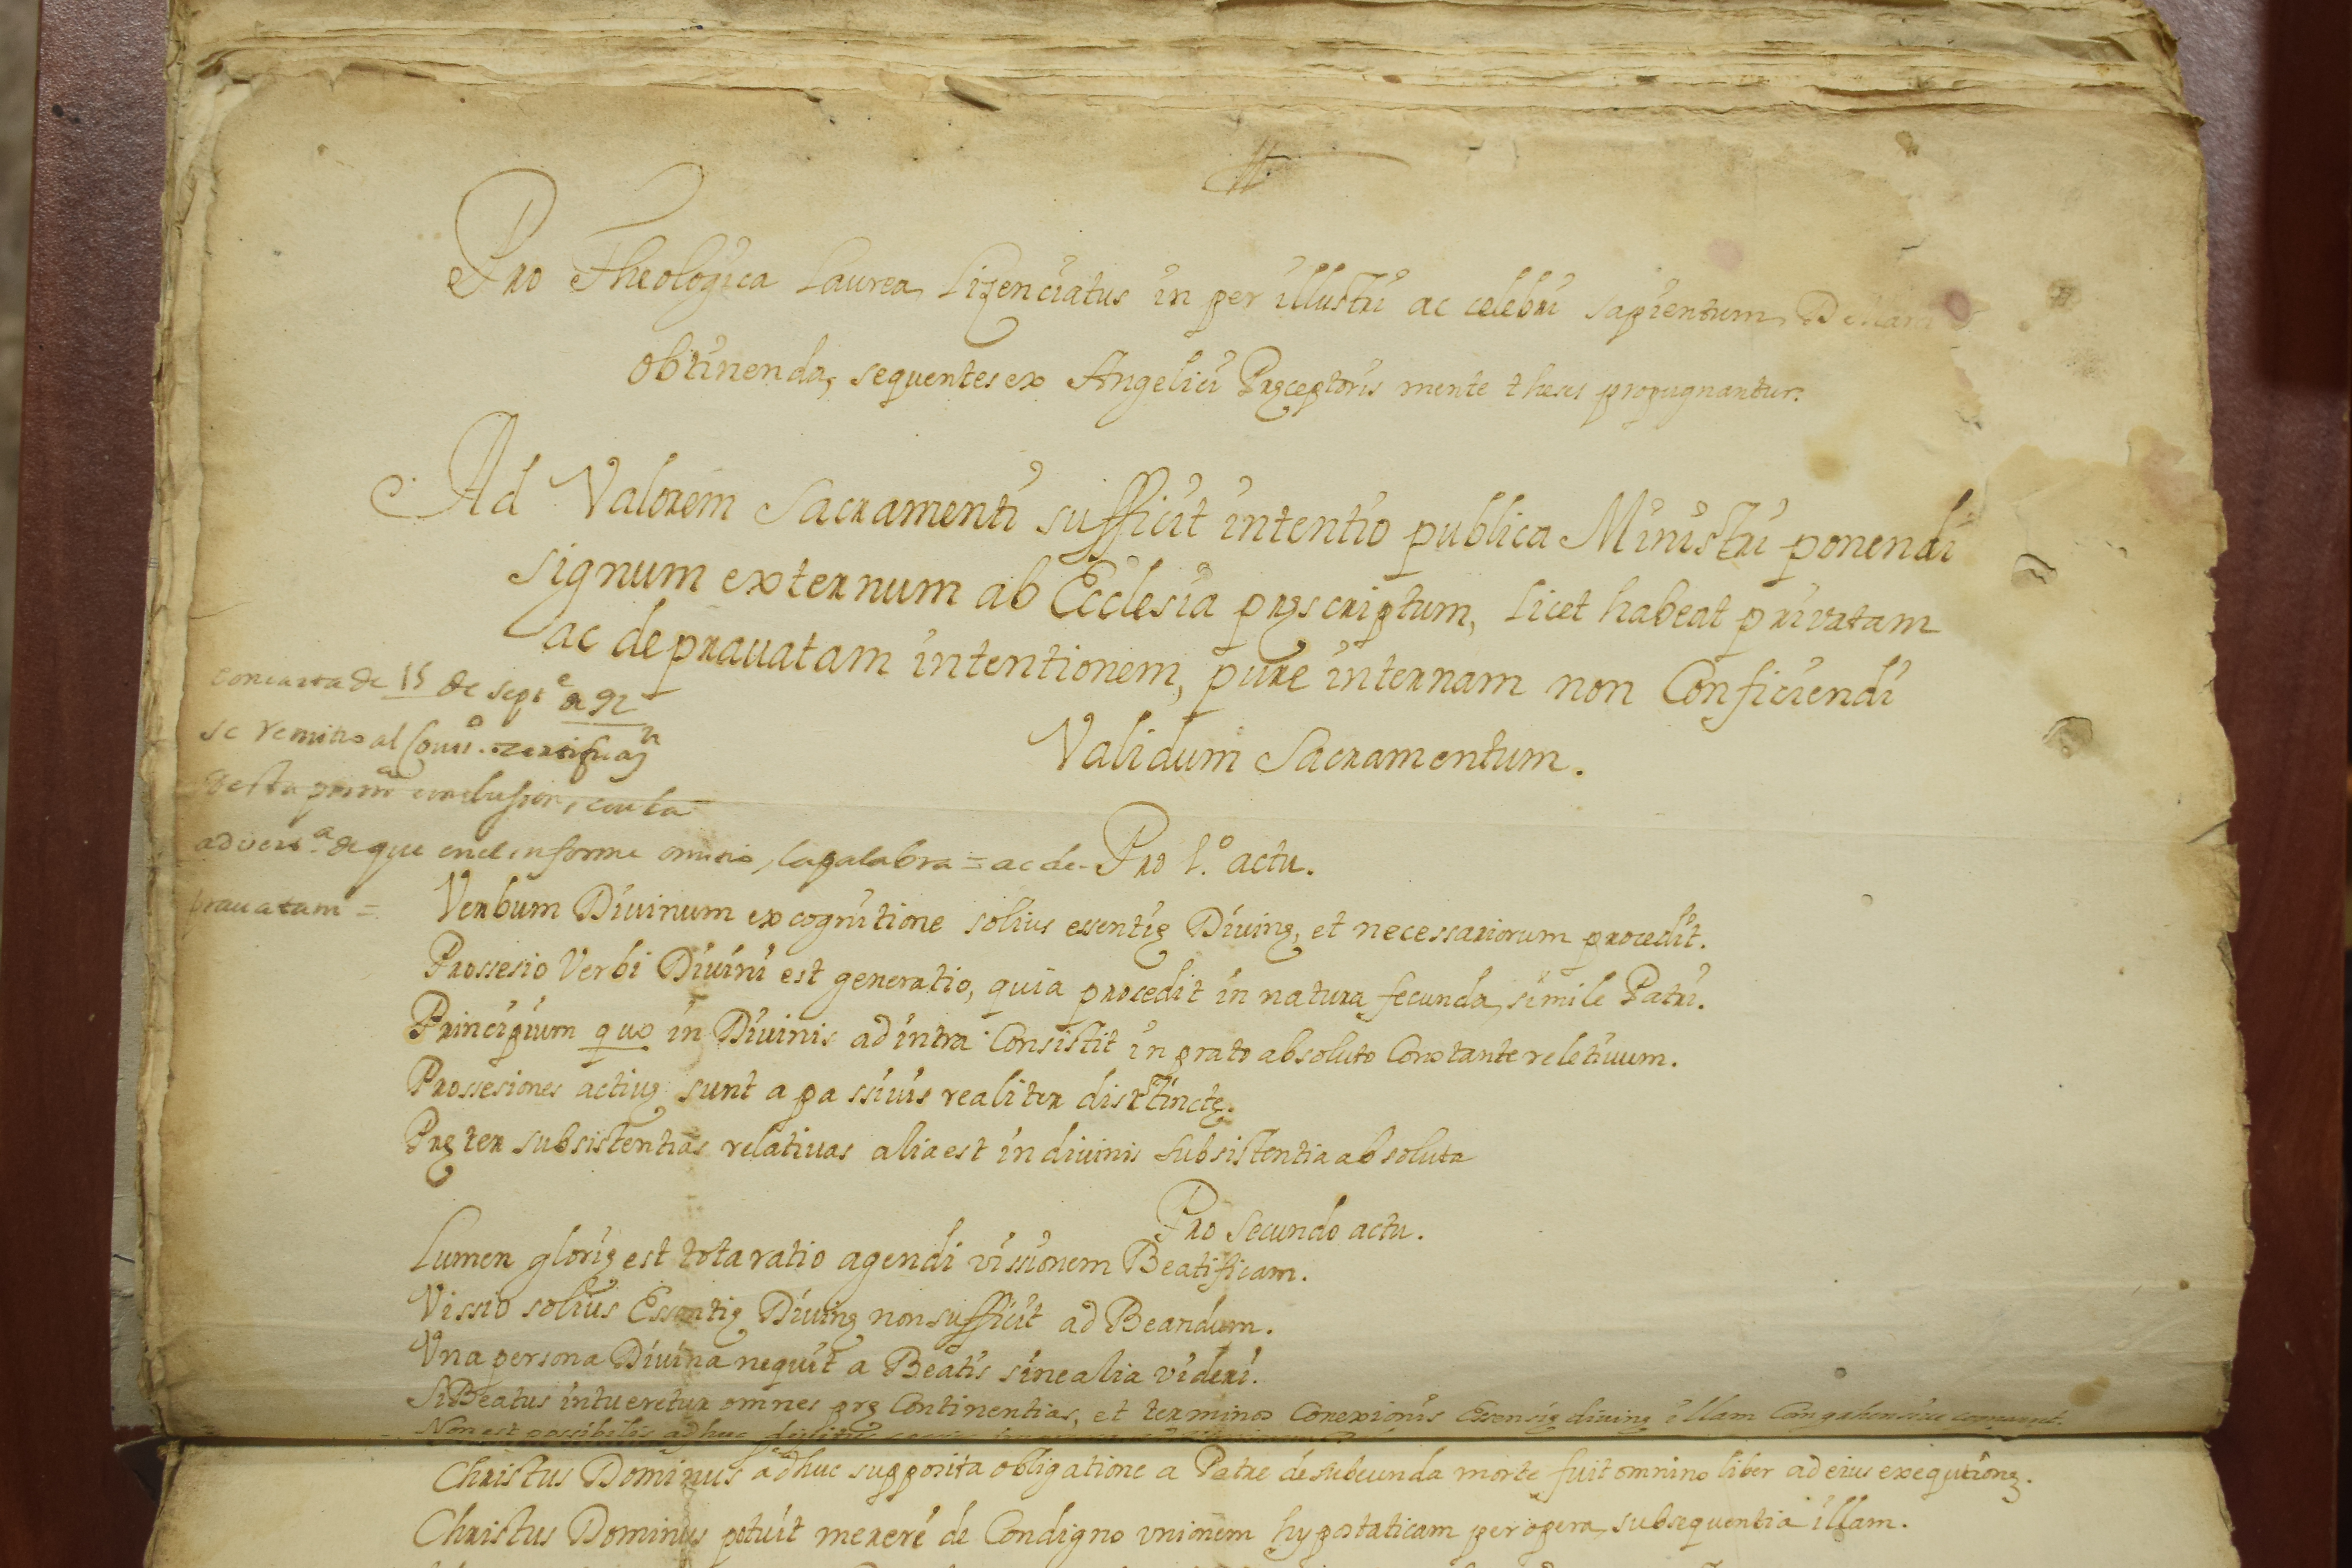 Pro Theologica Laurea, Lizenciatus in per illustri ac celebri sapientum
obtinenda, sequentes ex Angelici Pręceptoris mente theses propugnantur.
Ad Valorem Sacramenti sufficit intentio publica Ministri ponendi
signum externum ab Ecclesia pręscriptum, licet habeat privatam
ac deprauatam intentionem, pure internam non Conficiendi
Validum Sacramentum.
con carta de 15 de septe de 92
se remitio al
desta prima conclusion, con la
adverta de que en el informe omitio la palabra = ac de-
prauatam =
Pro 1.o actu.
Verbum Diuinum ex cognitione solius essentię Diuinę, et necessariorum procedit.
Prossesio Verbi Diuini est generatio, quia procedit in natura fecunda, simile Patri.
Principium quo in Diuinis ad intra Consistit in prato absoluto Conotante reletiuum.
Prossesiones actiuę sunt a passiuis realiter distinctę.
Pręter subsistentias relatiuas alia est in diuinis subsistentia absoluta
Pro Secundo actu.
Lumen glorię est tota ratio agendi vissionem Beatificam.
Vissio solius Essentię Diuinę non sufficit ad Beandum.
Vna persona Diuina nequit a Beatis sine alia videri.
Si Beatus intueretur omnes prę Continentias, et terminos Conexionis diuinę illam
Non est possibilis adhuc
Christus Dominus adhuc supposita obligatione a Patre de subeunda morte fuit omnino liber ad eius
Christus Dominus potuit mereri de Condigno vnionem hypostaticam per opera, subsequentia illam.